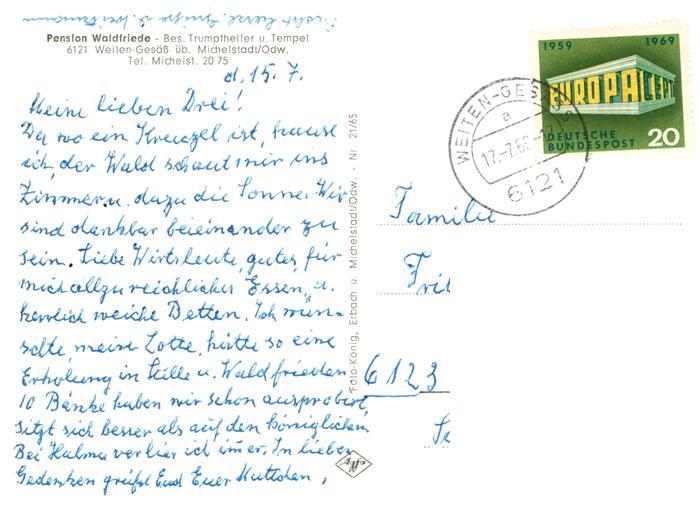 Recht herzl. Grüße
Pension Waldfriede - Bes. Trumpfheller u. Tempel
6121 Weiten-Gesäß üb. Michelstadt/Odw.
Tel. Michelst. 20 75
d. 15. 7.
Meine lieben Drei!
Da wo ein Kreuzel ist, hause
ich, der Wald schaut mir ins
Zimmer u. dazu die Sonne. Wir
sind dankbar beieinander zu
sein. Liebe Wirtsleute, gutes, für
mich allzu reichliches Essen, u.
herrlich weiche Betten. Ich wün-
schte, meine Lotte, hätte so eine
Erholung in Stille u. Waldfrieden
10 Bänke haben wir schon ausprobiert
sitzt sich besser als auf den königlichen
Bei Halma verlier ich immer. In lieben
Gedenken grüßt Euch Euer Muttchen,
Foto-König, Erbach u. Michelstadt/Odw. - Nr. 21/65
Agfa
1959 1969
EUROPA CEPT
DEUTSCHE
BUNDESPOST 20
WEITEN-GESÄSS
a
17.-7.69-17
6121
Familie
6123